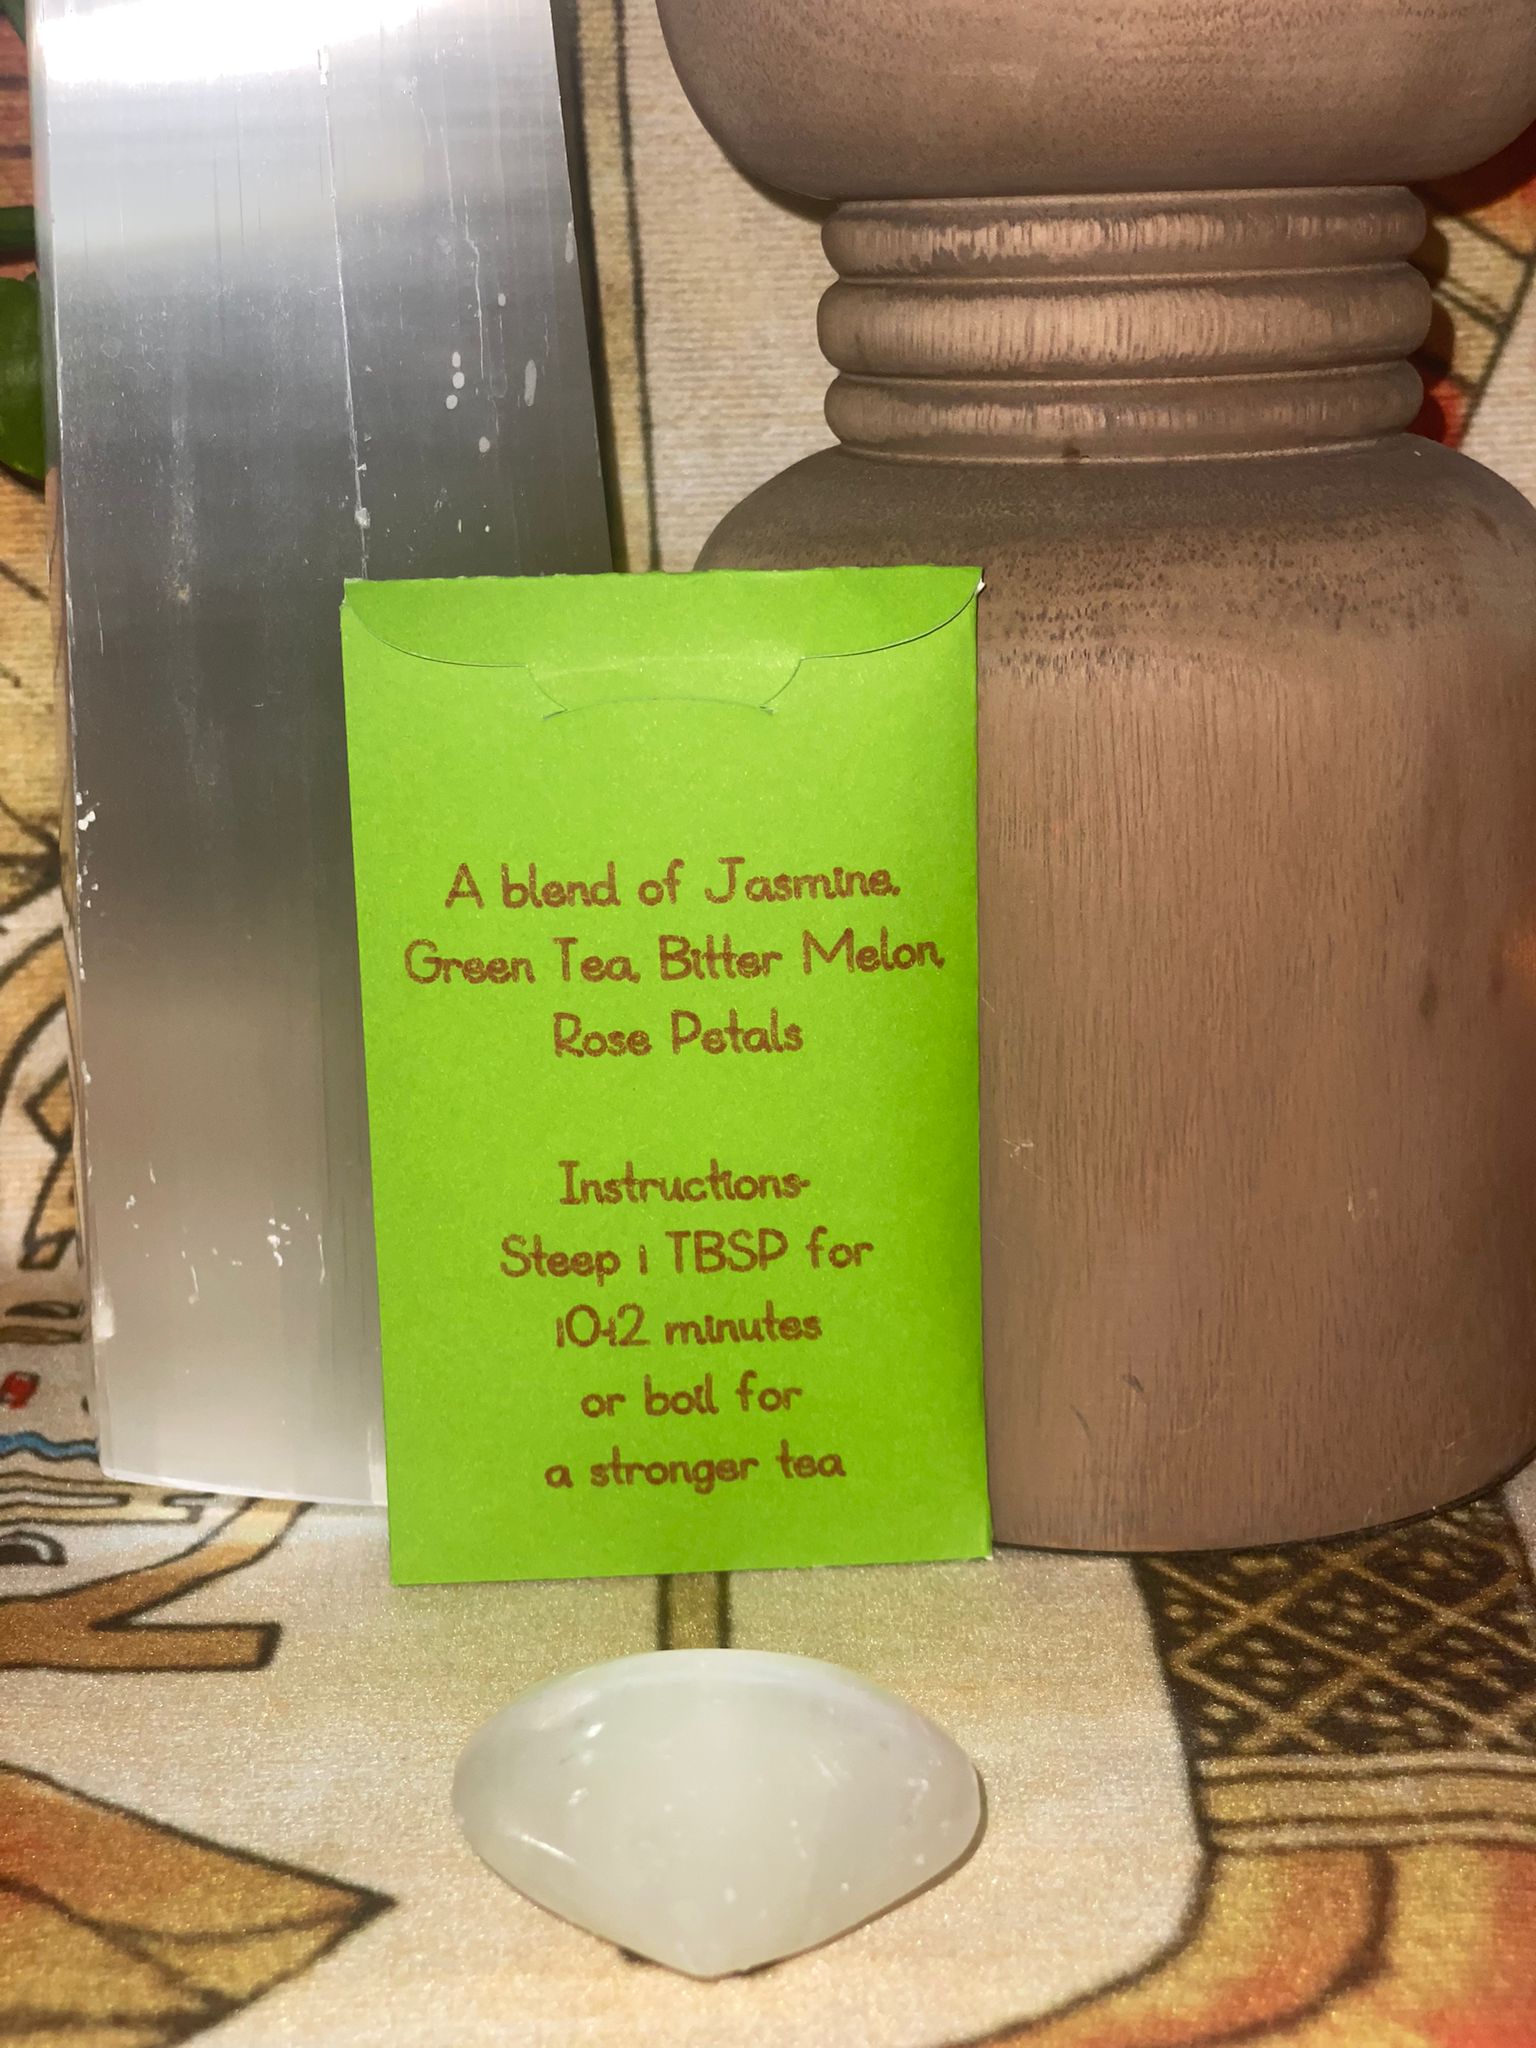 A blend of Jasmine,
Green Tea, Bitter Melon,
Rose Petals
Instructions-
Steep 1 TBSP for
10-12 minutes
or boil for
a stronger tea